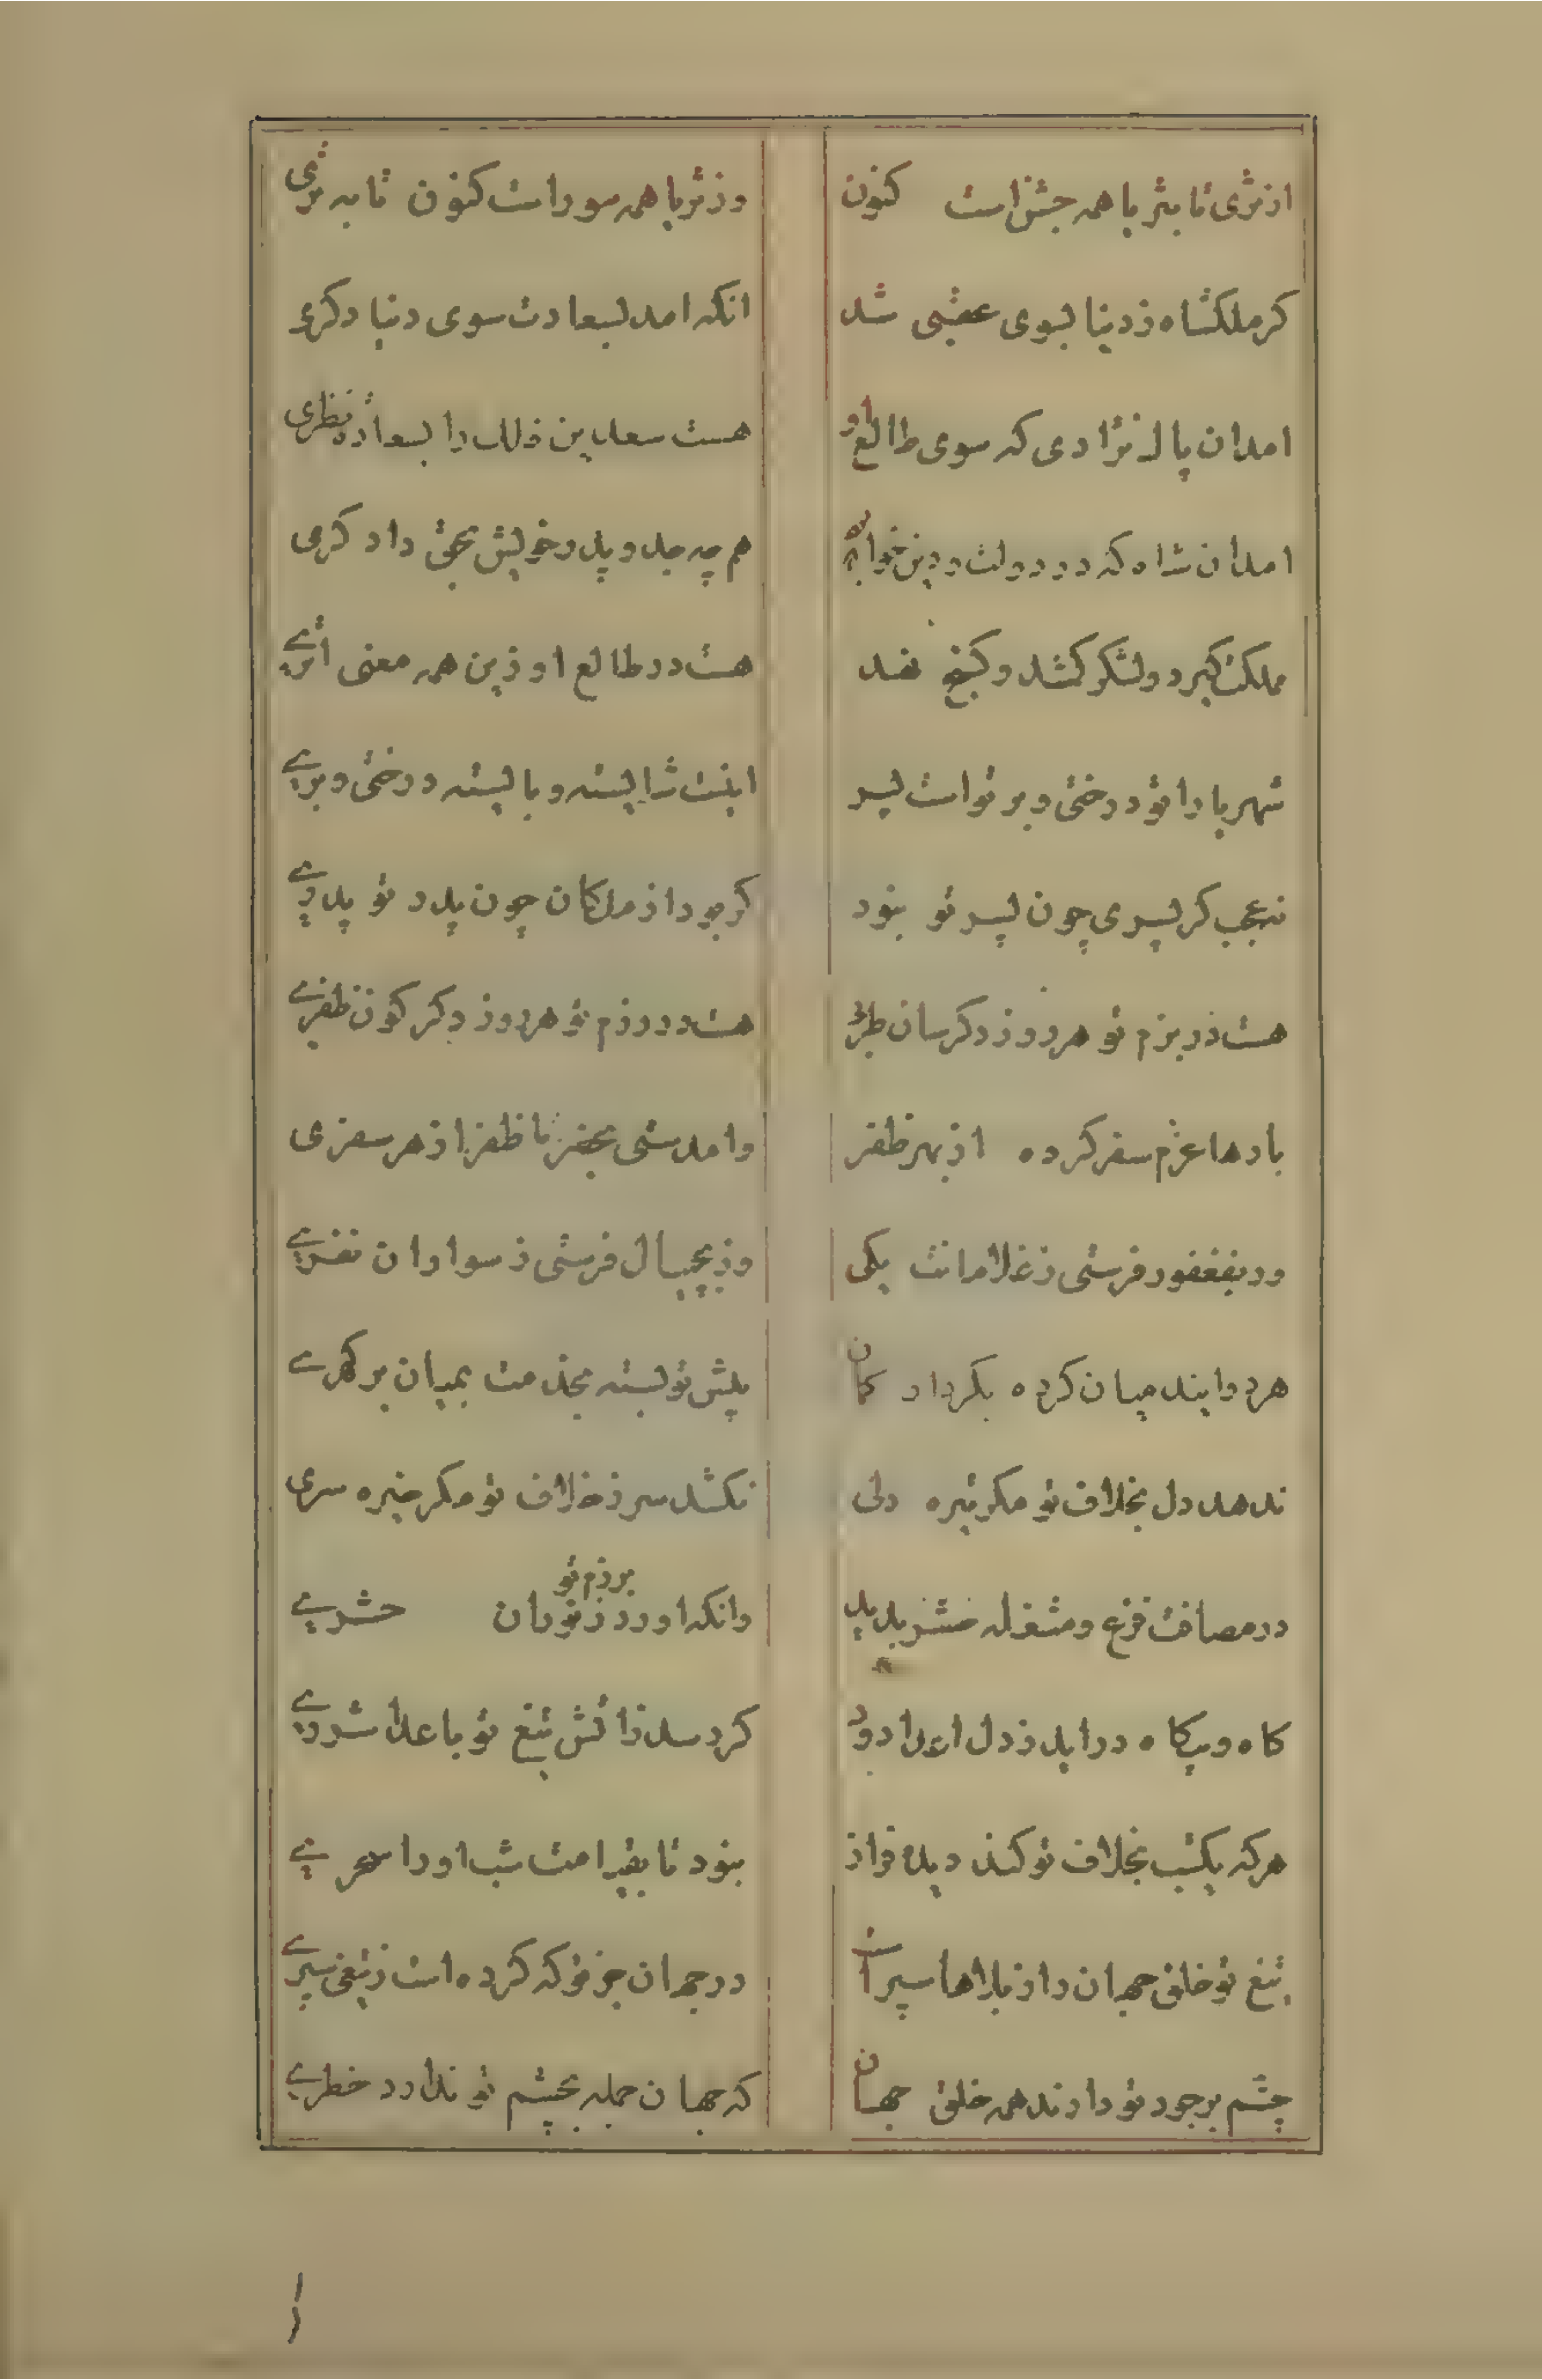 از ثری تا بثریا همه جشن است کنون
وز ثریا همه سور است کنون تا به ثری
کر ملکشاه ز دنیا بسوی عقبی شد
انکه امد بسعادت سوی دنیا دکری
امد ان پاک نژادی که سوی طالع او
هست سعدین فلک را بسعادة نظری
امد ان شاه که در دولت و دین خواهد
هم چه جد و پدر خویش بحق داد کری
مملکت کیرد و لشکر کشد و کنج نهد
هست در طالع او زین همه معنی اثری
شهریارا تو درختی و بر تو است پسر
اینت شایسته و بایسته درختی و بری
نه عجب کر پسری چون پسر تو بنود
کر بود از ملکان چون پدر تو پدری
هست در بزم تو هر روز دکر سان طربی
هست در رزم تو هر روز دکر کون ظفری
بارها عزم سفر کرده از بهر ظفر
وامدستی بحضر با ظفر از هر سفری
ور بفغفور فرستی ز غلامانت یکی
وز بجیپال فرستی ز سواران نفری
هر دو ایند میان کرده بکردار کمان
پیش تو بسته بخذمت بمیان بر کمری
ندهد دل بخلاف تو مکر تیره دلی
نکشد سر ز خلاف تو مکر خیره سری
در مصافت فزع و مشغله حشر پدید
وانکه اورد ز توران برزم تو حشری
کاه و بیکاه در اید ز دل اعدا دود
کر رسد ز اتش تیغ تو باعدا شرری
هر که یکشب بخلاف تو کند دیده فراز
بنود تا بقیامت شب او را سحری
تیغ تو خلق جهان را ز بلاها سپر است
در جهان جز تو که کرده است ز تیغی سپری
چشم بر جود تو دارند همه خلق جهان
که جهان جمله بچشم تو ندارد خطری